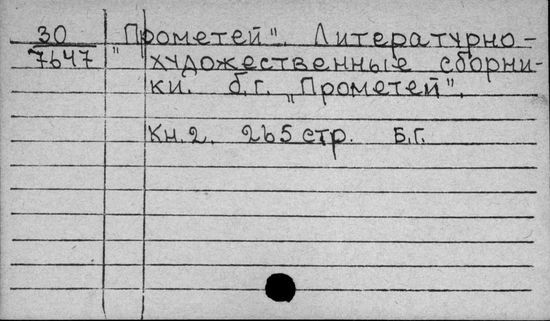 30 "Прометей". Литературно-
7647 художественные сборни-
ки. б.г. "Прометей".
Кн.2. 265 стр. Б.Г.